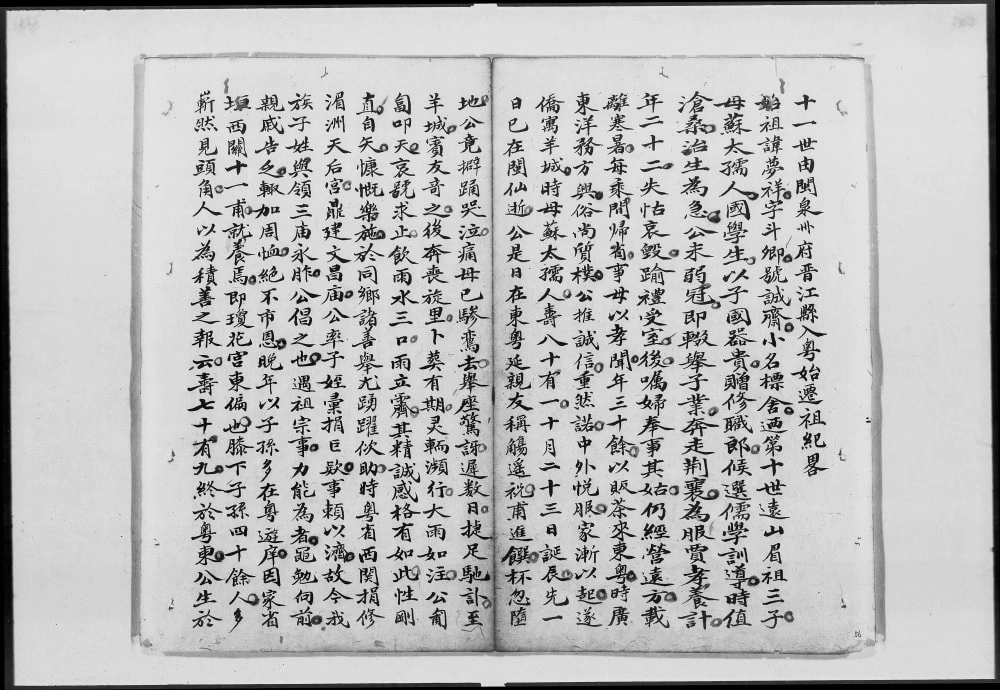 十一世由閩泉州府晋江縣入粤始遷祖紀畧
始祖諱夢祥字斗卿號誠齋小名標舍迺第十世遠山眉祖三子
母蘇太孺人國學生以子國器貴贈修職郎候選儒學訓導時值
滄桑治生為急公未弱冠即輟舉子業奔走荆襄為服賈孝養計
年二十二失怙哀毀踰禮受室後囑婦奉事其姑仍經營遠方載
離寒暑每乘間歸省事母以孝聞年三十餘以販茶來東粤時廣
東洋務方興俗尚質樸公推誠信重然諾中外悦服家漸以起遂
僑寓羊城時母蘇太孺人壽八十有一十月二十三日誕辰先一
日已在閩仙逝公是日在東粤延親友稱觴遙祝甫進饌杯忽墮
地公竟擗踊哭泣痛母已驂鸞去舉座驚訝遲数日捷足馳訃至
羊城賓友奇之後奔喪旋里卜葵有期灵輀瀕行大雨如注公匍
匐叩天哀號求止飲雨水三口雨立霽其精誠感格有如此性剛
直自矢慷慨樂施於同鄉諸善舉尤踴躍佽助時粤省西関捐修
湄洲天后宮鼎建文昌庙公率子姪彙捐巨欵事賴以濟故今我
族子姓與領三庙永胙公倡之也遇祖宗事力能為者黽勉向前
親戚告乏輒加周恤絕不市恩晚年以子孫多在粤遊庠因家省
垣西關十一甫就養焉即瓊花宮東偏也膝下子孫四十餘人多
嶄然見頭角人以為積善之報云壽七十有九終於粤東公生於
56